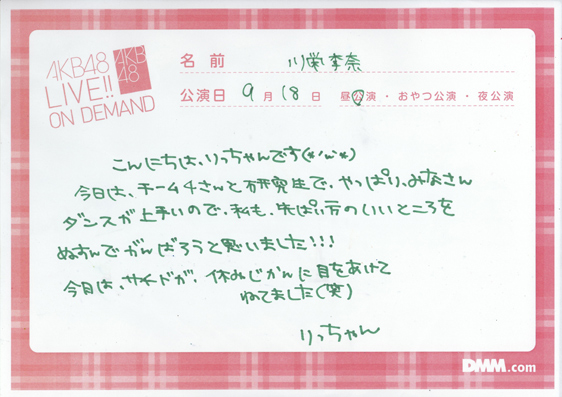 AKB48
LIVE!!
ON DEMAND
AKB
48
名前 川栄李奈
公演日 9月18日 昼公演・おやつ公演・夜公演
こんにちは、りっちゃんです(*'ω'*)
今日は、チーム4さんと研究生で、やっぱり、みなさん
ダンスが上手いので、私も、先ぱい方のいいところを
ぬすんでがんばろうと思いました!!!
今日は、サイドが、休みじかんに目をあけて
ねてました(笑)
りっちゃん
DMM.com